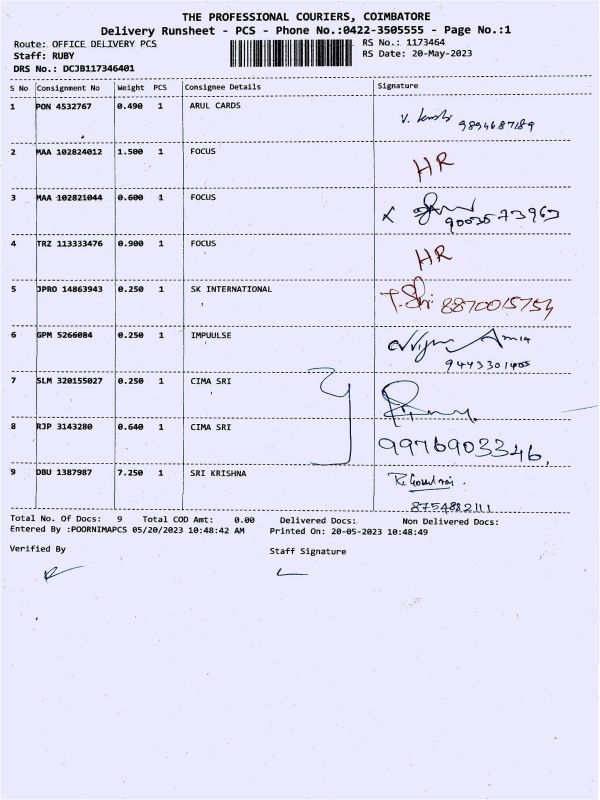 THE PROFESSIONAL COURIERS, COIMBATORE
Delivery Runsheet - PCS - Phone No.:0422-3505555 - Page No.:1
Route: OFFICE DELIVERY PCS RS No.: 1173464
Staff: RUBY RS Date: 20-May-2023
DRS No.: DCJB117346401
S No Consignment No Weight PCS Consignee Details Signature
1 PON 4532767 0.490 1 ARUL CARDS
9894687189
2 MAA 102824012 1.500 1 FOCUS HR
3 MAA 102821044 0.600 1 FOCUS
9003573963
4 TRZ 113333476 0.900 1 FOCUS HR
5 JPRO 14863943 0.250 1 SK INTERNATIONAL T.Sri 8870015754
6 GPM 5266084 0.250 1 IMPUULSE
9443301405
7 SLM 320155027 0.250 1 CIMA SRI
8 RJP 3143280 0.640 1 CIMA SRI 9976903346.
9 DBU 1387987 7.250 1 SRI KRISHNA
8754882111
Total No. Of Docs: 9 Total COD Amt: 0.00 Delivered Docs: Non Delivered Docs:
Entered By :POORNIMAPCS 05/20/2023 10:48:42 AM Printed On: 20-05-2023 10:48:49
Verified By Staff Signature